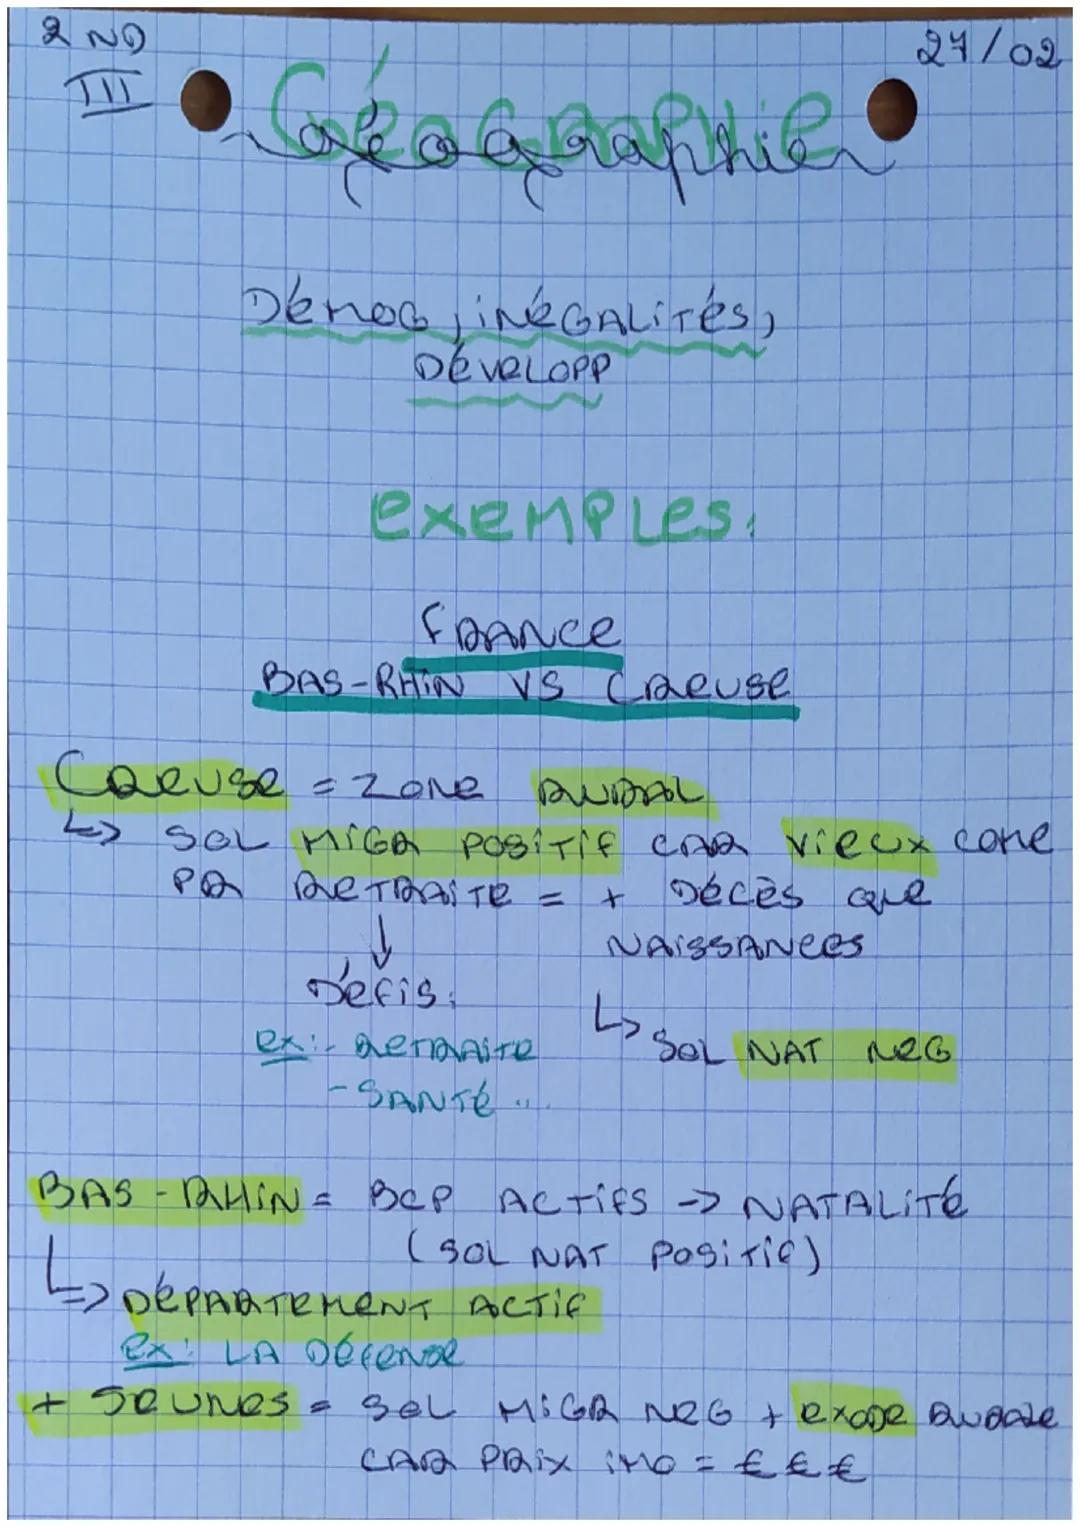 2 ND
27/02
III
Géographie
Démog, inégalités,
Développ
Exemples:
France
Bas-Rhin vs Creuse
Creuse = zone rural
↳ sol migr positif car vieux come
pr retraite = + décès que
naissances
↓
Défis:
ex: - retraite
- santé ...
↳ sol nat neg
Bas-Rhin = bcp actifs → natalité
(sol nat positif)
↳ département actif
ex: La Défense
+ jeunes = sol migr neg + exode rurale
car prix imo = €€€